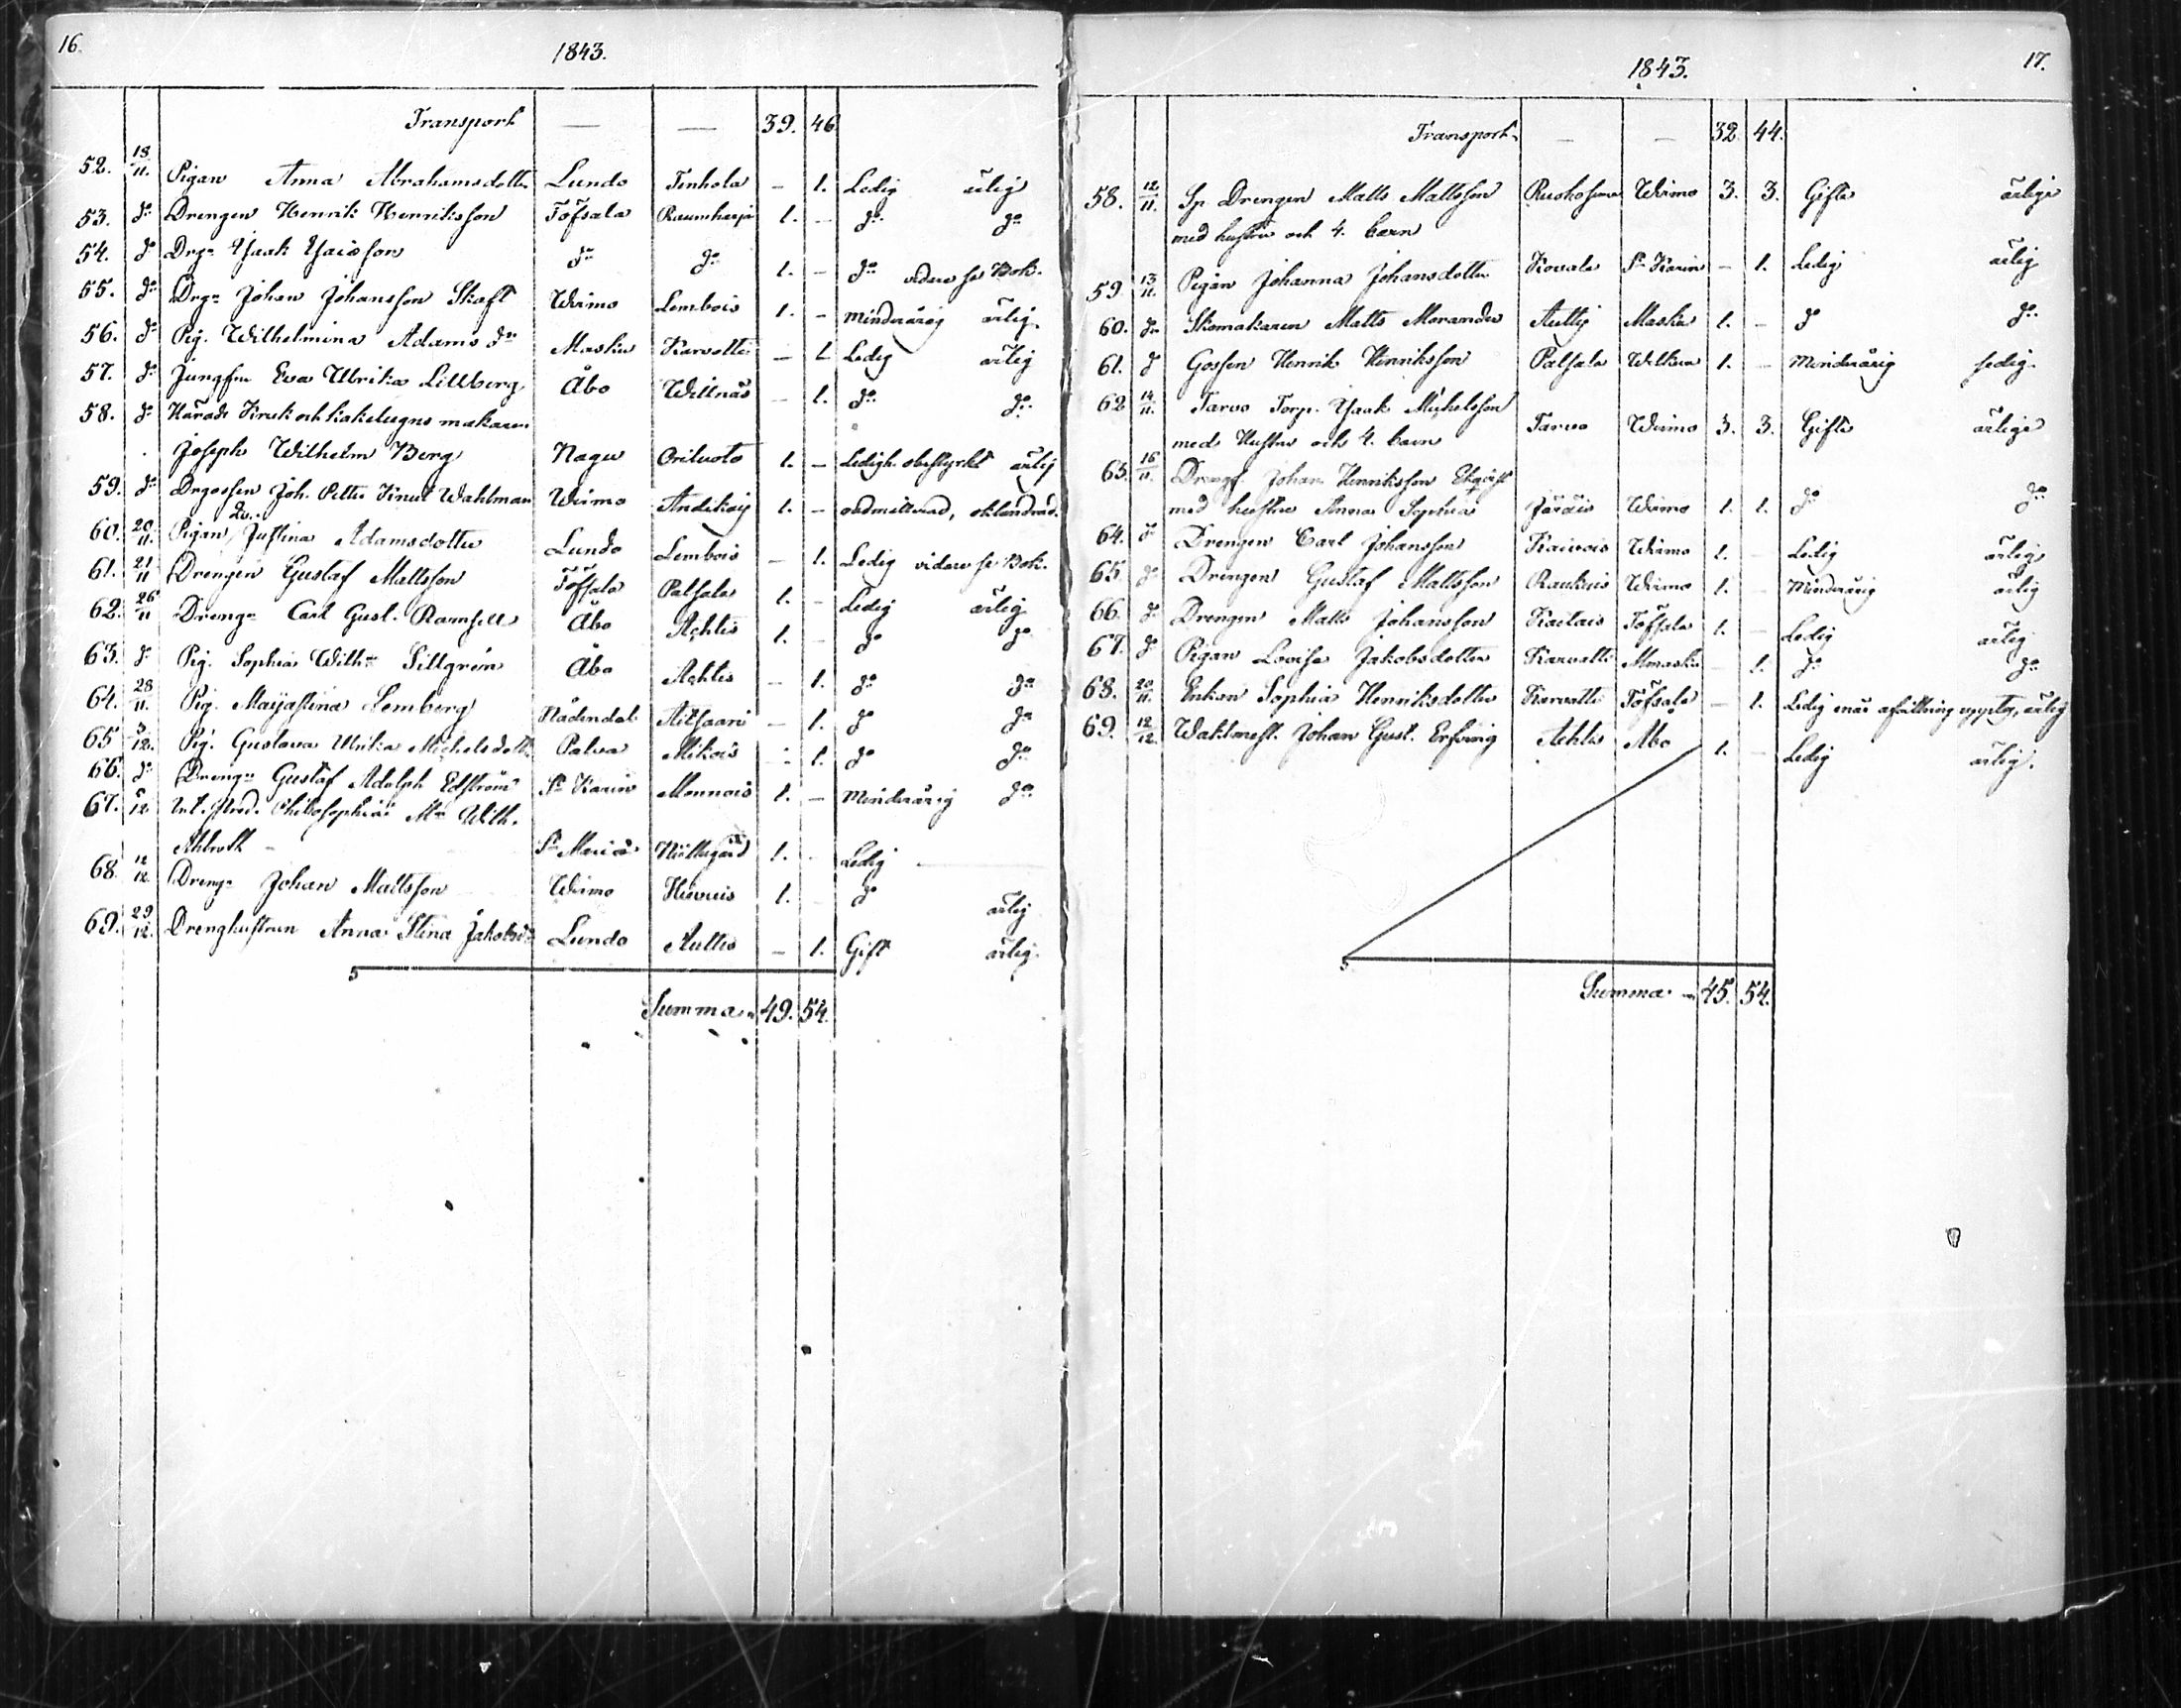 16.
1843.
Transport — — 39. 46.
52. 18/11. Pigan Anna Abrahamsdotter Lundo Tenhola – 1. Ledig ärlig
53. do Drengen Henrik Henriksson Töfsala Raumharju 1. – do do
54. do Drg. Isaak Isaisson do do 1. – do vidare se Bok.
55. do Drg. Johan Johansson Skaft Wirmo Lembois 1. – minderårig ärlig
56. do Pig. Wilhelmina Adams dr Masku Karvatti – 1. Ledig ärlig
57. do Jungfru Eva Ulrika Lillberg Åbo Willnäs – 1. do do
58. do Härads Kruk och kakelugns makaren
Joseph Wilhelm Berg Nagu Oriluoto 1. – Ledigh. obestyrkt ärlig
59. do Drgossen Joh. Petter Knut Wahlman Wirmo Andikaij 1. – oadmitterad, oklandrad.
60. 20/11. Pigan Justina Adamsdotter Lundo Lembois – 1. Ledig vidare se Bok.
61. 21/11 Drengen Gustaf Mattsson Töfsala Palsala 1. – Ledig ärlig
62. 26/11 Drengn Carl Gust. Ramsell Åbo Achtis 1. – do do
63. do Pig. Sophia Wilha Sillgrén Åbo Achtis – 1. do do
64. 28/11. Pig. Maijastina Lemberg Nådendal Aitsaari – 1. do do
65 3/12. Pig. Gustava Ulrika Michelsdotter Palva Mikois – 1. do do
66. do Drengn Gustaf Adolph Edström St Karin Monnois 1. – Minderårig do
67. 5/12 Stud. Philosophiæ Mr Wilh.
Ahlroth St Mariæ Nuttegård 1. – Ledig
68. 12/12. Drengn Johan Mattsson Wirmo Hievois 1. – do ärlig
69. 29/12. Drenghustrun Anna Stina Jakobsdr Lundo Auttis – 1. Gift ärlig.
Summa 49. 54.
17.
1843.
Transport – – 32. 44.
58. 12/11. Sp. Drengen Matts Mattsson Wirmo 3. 3. Gifta ärliga
med hustru och 4. barn
59. 13/11. Pigan Johanna Johansdotter Kovala St Karin – 1. Ledig ärlig
60. do Skomakaren Matts Morander Auttis Masku 1. – do do
61. do Gossen Henrik Henriksson Palsala 1. – Minderårig sedig.
62 14/11. Tarvo Torp. Isaak Michelsson
med Hustru och 4. barn Tarvo Wirmo 3. 3. Gifta ärliga
63. 16/11. Drengn Johan Henriksson Ekqvist
med hustru Anna Sophia Järäis Wirmo 1. 1. do do
64. do Drengen Carl Johansson Kaivois Wirmo 1. – Ledig ärlig
65. do Drengen Gustaf Mattsson Raukuis Wirmo 1. – Minderårig ärlig
66. do Drengen Matts Johansson Kaitais Töfsala 1. – Ledig ärlig
67. do Pigan Lovisa Jakobsdotter Karvatti Masku – 1. do do
68. 20/11. Enkan Sophia Henriksdotter Karvatti Töfsala – 1. Ledig enär afvittring upptg, ärlig
69. 12/12. Waktmest. Johan Gust. Erfving Achtis Åbo 1. – Ledig ärlig.
Summa 45. 54.